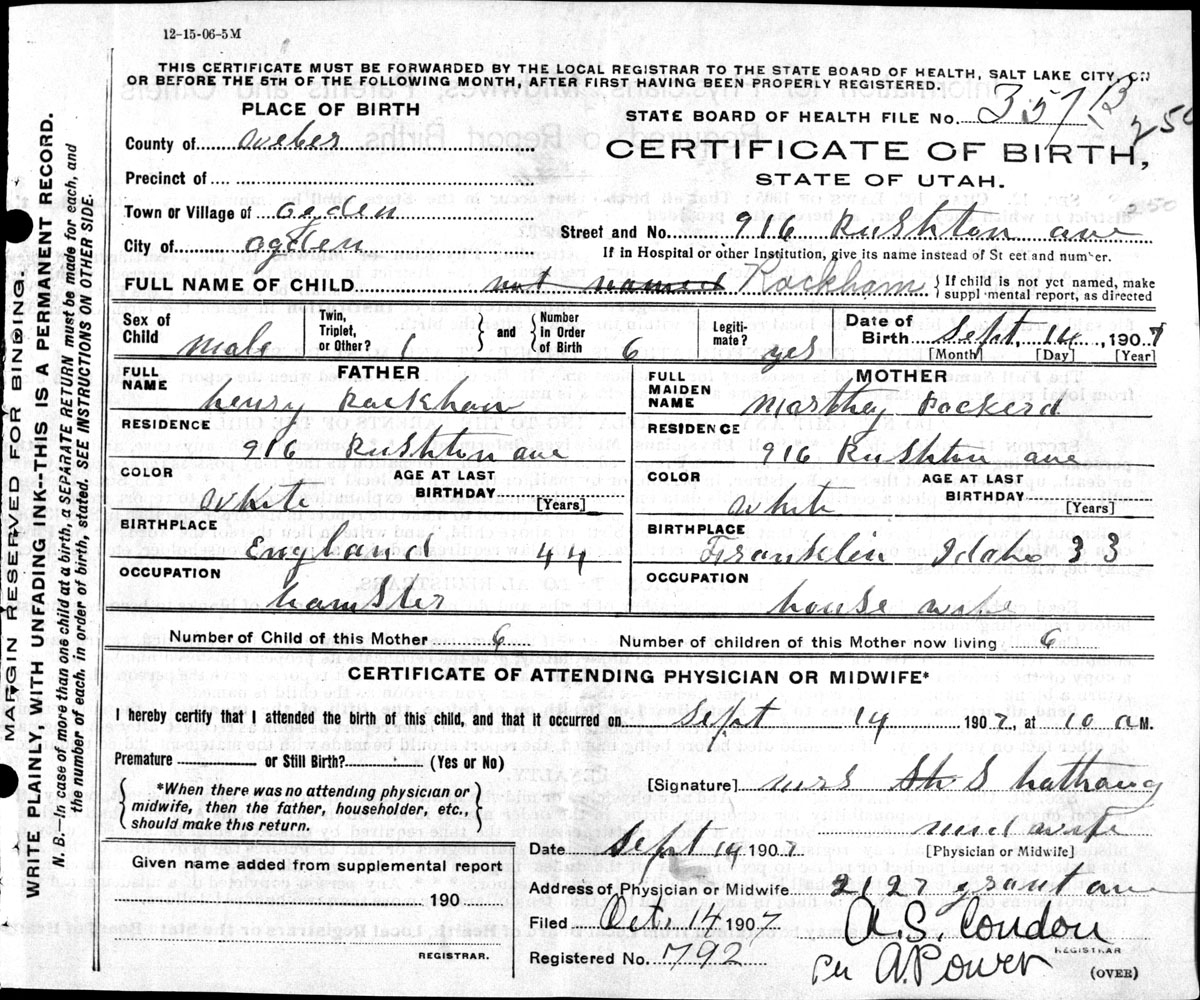 12-15-06-5M
THIS CERTIFICATE MUST BE FORWARDED BY THE LOCAL REGISTRAR TO THE STATE BOARD OF HEALTH, SALT LAKE CITY, ON
OR BEFORE THE 5TH OF THE FOLLOWING MONTH, AFTER FIRST HAVING BEEN PROPERLY REGISTERED.
PLACE OF BIRTH
STATE BOARD OF HEALTH FILE No. 357 B
250
County of weber
CERTIFICATE OF BIRTH,
STATE OF UTAH.
Precinct of
Town or Village of ogden
Street and No. 916 Rushton ave
City of ogden
If in Hospital or other Institution, give its name instead of St eet and number.
FULL NAME OF CHILD not named Rackham { If child is not yet named, make suppl mental report, as directed
Sex of Child male Twin, Triplet, or Other? 1 { and } Number in Order of Birth 6 Legiti- mate? yes Date of Birth Sept. 14, 1907
[Month] [Day] [Year]
FATHER
FULL NAME henry Rackham
RESIDENCE
916 Rushton ave
COLOR white AGE AT LAST BIRTHDAY [Years]
BIRTHPLACE
England 44
OCCUPATION
MOTHER
FULL MAIDEN NAME Marthey Packerd
RESIDENCE
916 Rushton ave
COLOR white AGE AT LAST BIRTHDAY [Years]
BIRTHPLACE
Franklin Idaho 33
OCCUPATION
house wife
Number of Child of this Mother 6 Number of children of this Mother now living 6
CERTIFICATE OF ATTENDING PHYSICIAN OR MIDWIFE*
I hereby certify that I attended the birth of this child, and that it occurred on Sept 14 1907, at 10 a M.
Premature or Still Birth? (Yes or No)
*When there was no attending physician or
midwife, then the father, householder, etc.,
should make this return.
[Signature] mrs S
mid wife
[Physician or Midwife]
Date Sept 14 1907
Given name added from supplemental report
190
REGISTRAR.
Address of Physician or Midwife 2127 grant ave
Filed Oct. 14 1907
A.S. Condon
REGISTRAR
Registered No. 792
per A. Power
(OVER)
MARGIN RESERVED FOR BINDING.
WRITE PLAINLY, WITH UNFADING INK--THIS IS A PERMANENT RECORD.
N. B.—In case of more than one child at a birth, a SEPARATE RETURN must be made for each, and
the number of each, in order of birth, stated. SEE INSTRUCTIONS ON OTHER SIDE.